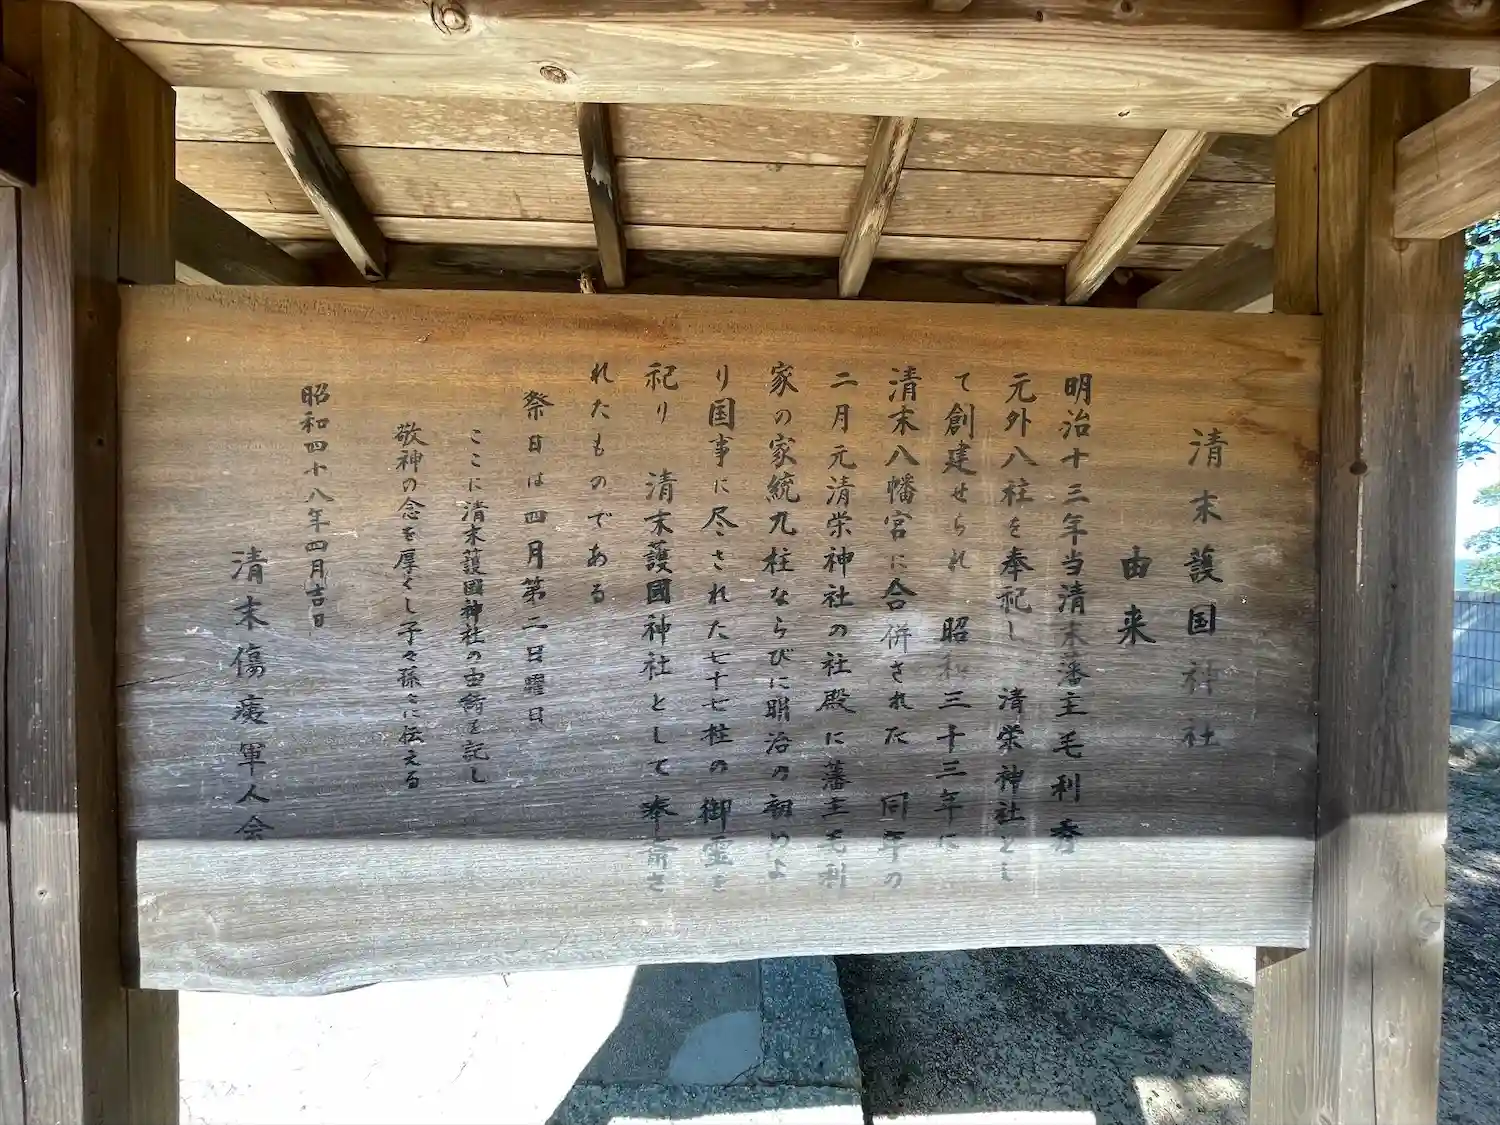 清末護国神社
由来
明治十三年当清末藩主毛利秀
元外八柱を奉祀し　清栄神社とし
て創建せられ　昭和三十三年に
清末八幡宮に合併された　同年の
二月元清栄神社の社殿に藩主毛利
家の家統九柱ならびに明治の初めよ
り国事に尽された七十七柱の御霊を
祀り　清末護國神社として奉斎さ
れたものである
祭日は四月第二日曜日
ここに清末護國神社の由緒を記し
敬神の念を厚くし子々孫々に伝える
昭和四十八年四月吉日
清末傷痍軍人会